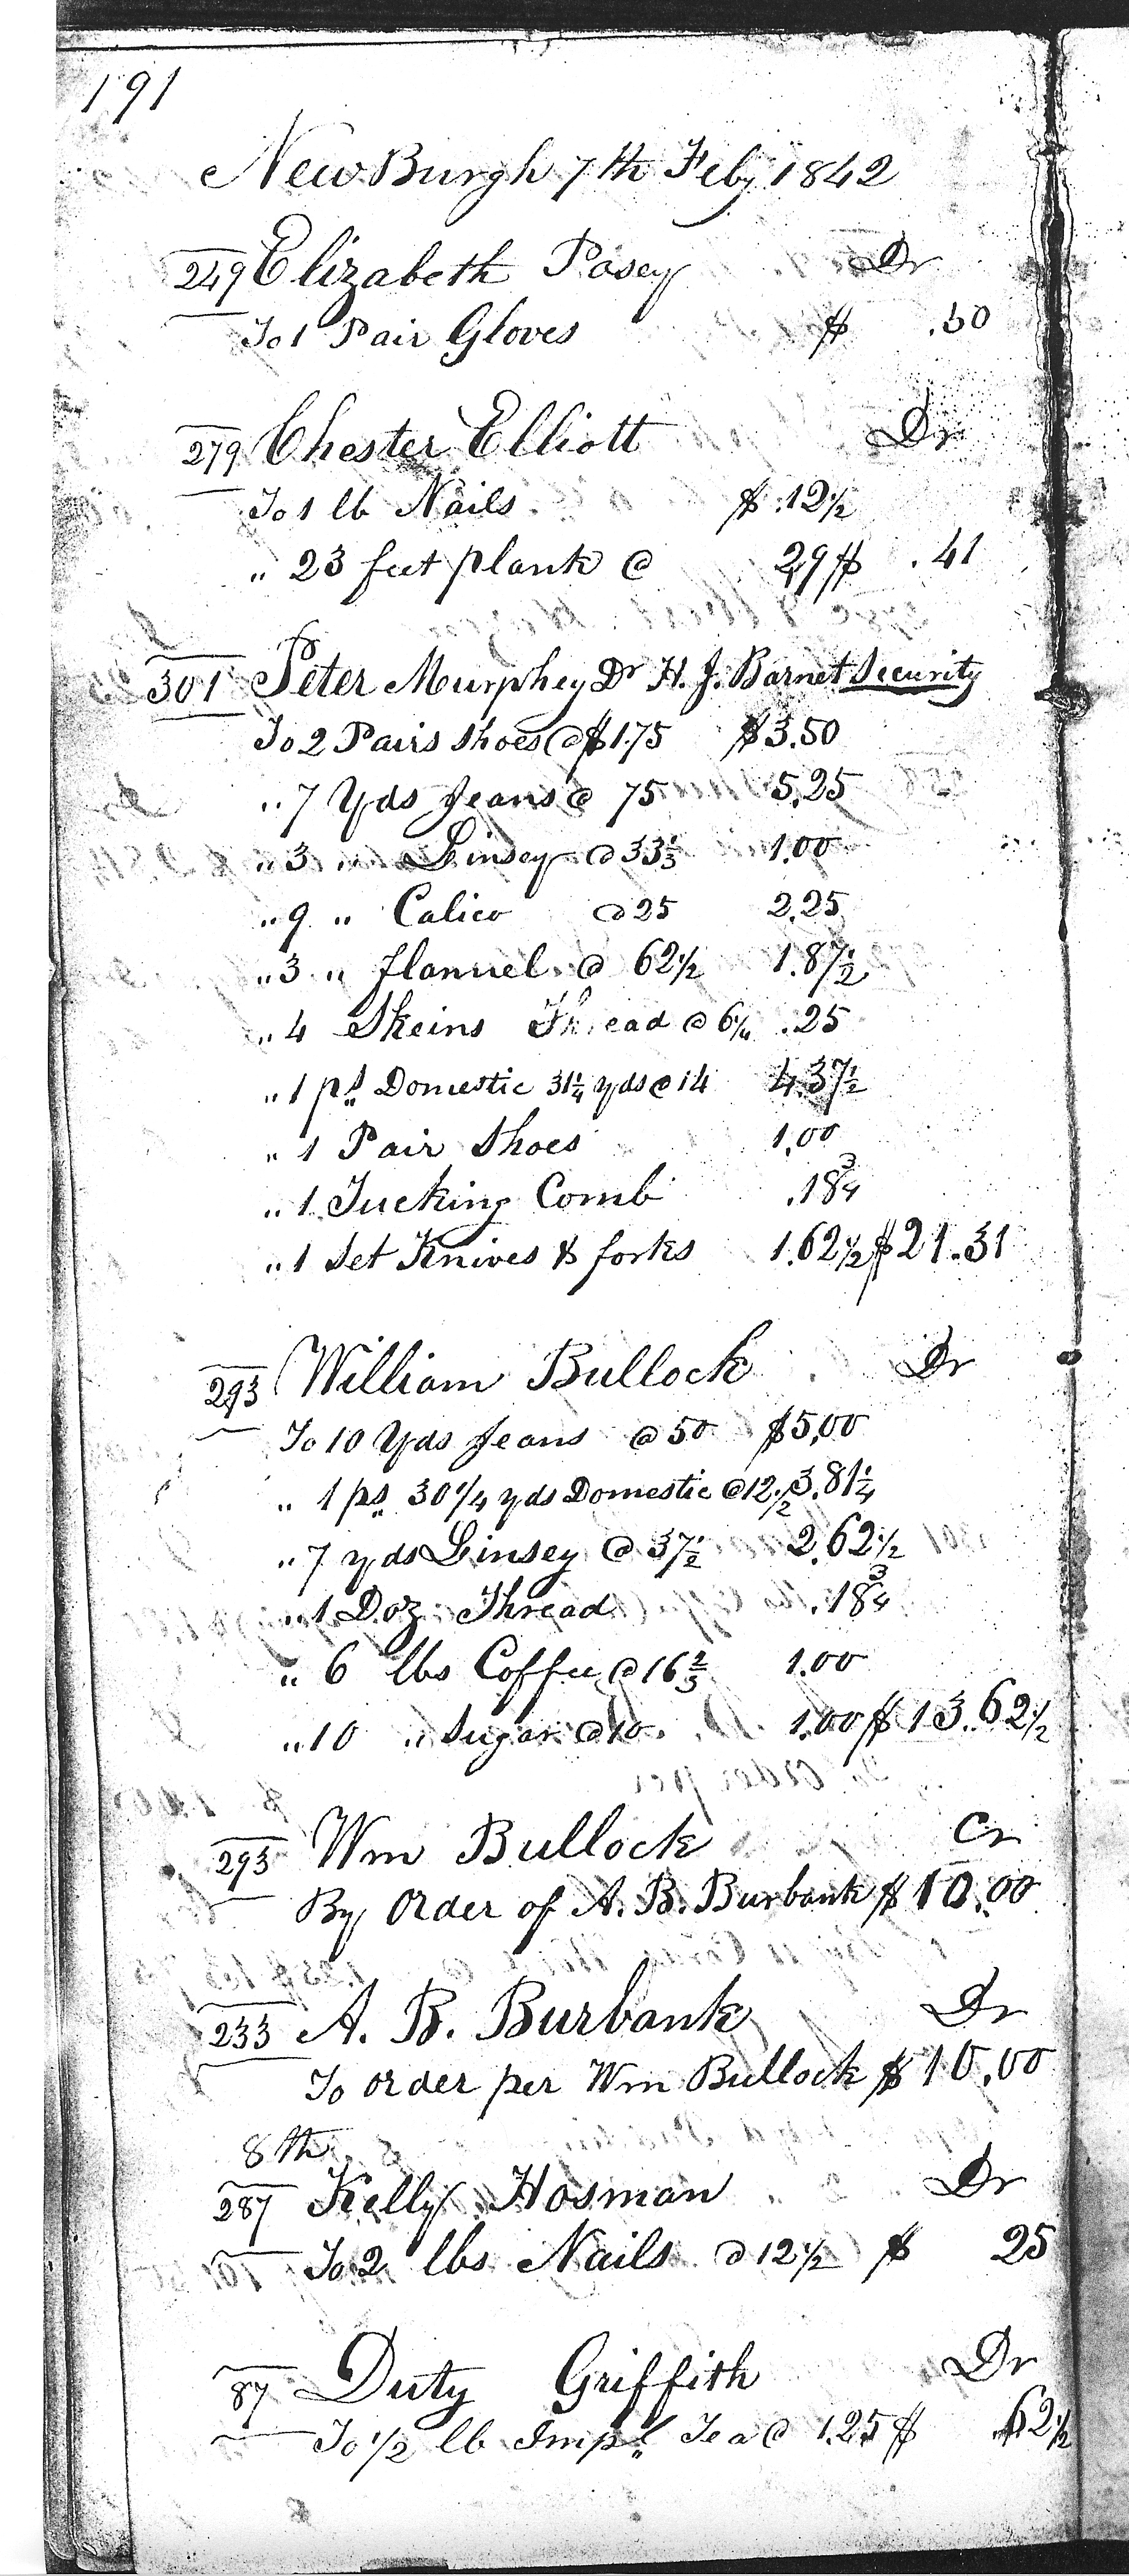 191
NewBurgh 7th Feby 1842
249 Elizabeth Posey Dr
To 1 Pair Gloves $ .50
279 Chester Elliott Dr
To 1 lb Nails $ .12½
" 23 feet plank @ 29 $ .41
301 Peter Murphey Dr H. J. Barnet Security
To 2 Pairs Shoes @ $1.75 $3.50
" 7 Yds Jeans @ 75 5,25
" 3 " Linsey @ 33⅓ 1.00
" 9 " Calico @ 25 2.25
" 3 " flannel @ 62½ 1.87½
" 4 Skeins Thread @ 6¼ .25
" 1 ps Domestic 31¼ yds @ 14 4.37½
" 1 Pair Shoes 1,00
" 1 Tucking Comb .18¾
" 1 Set Knives & forks 1.62½ $21.31
293 William Bullock Dr
To 10 Yds Jeans @ 50 $5,00
" 1 ps 30 1/4 yds Domestic @ 12½ 3.81¼
" 7 yds Linsey @ 37½ 2,62½
" 1 Doz Thread .18¾
" 6 lbs Coffee @ 16⅔ 1.00
" 10 " Sugar @ 10 1.00 $13.62½
293 Wm Bullock Cr
By Order of A. B. Burbank $10.00
233 A. B. Burbank Dr
To order per Wm Bullock $10.00
8th
287 Kelly Hosman Dr
To 2 lbs Nails @ 12½ $ 25
87 Duty Griffith Dr
To 1/2 lb Impl Tea @ 1.25 $ .62½